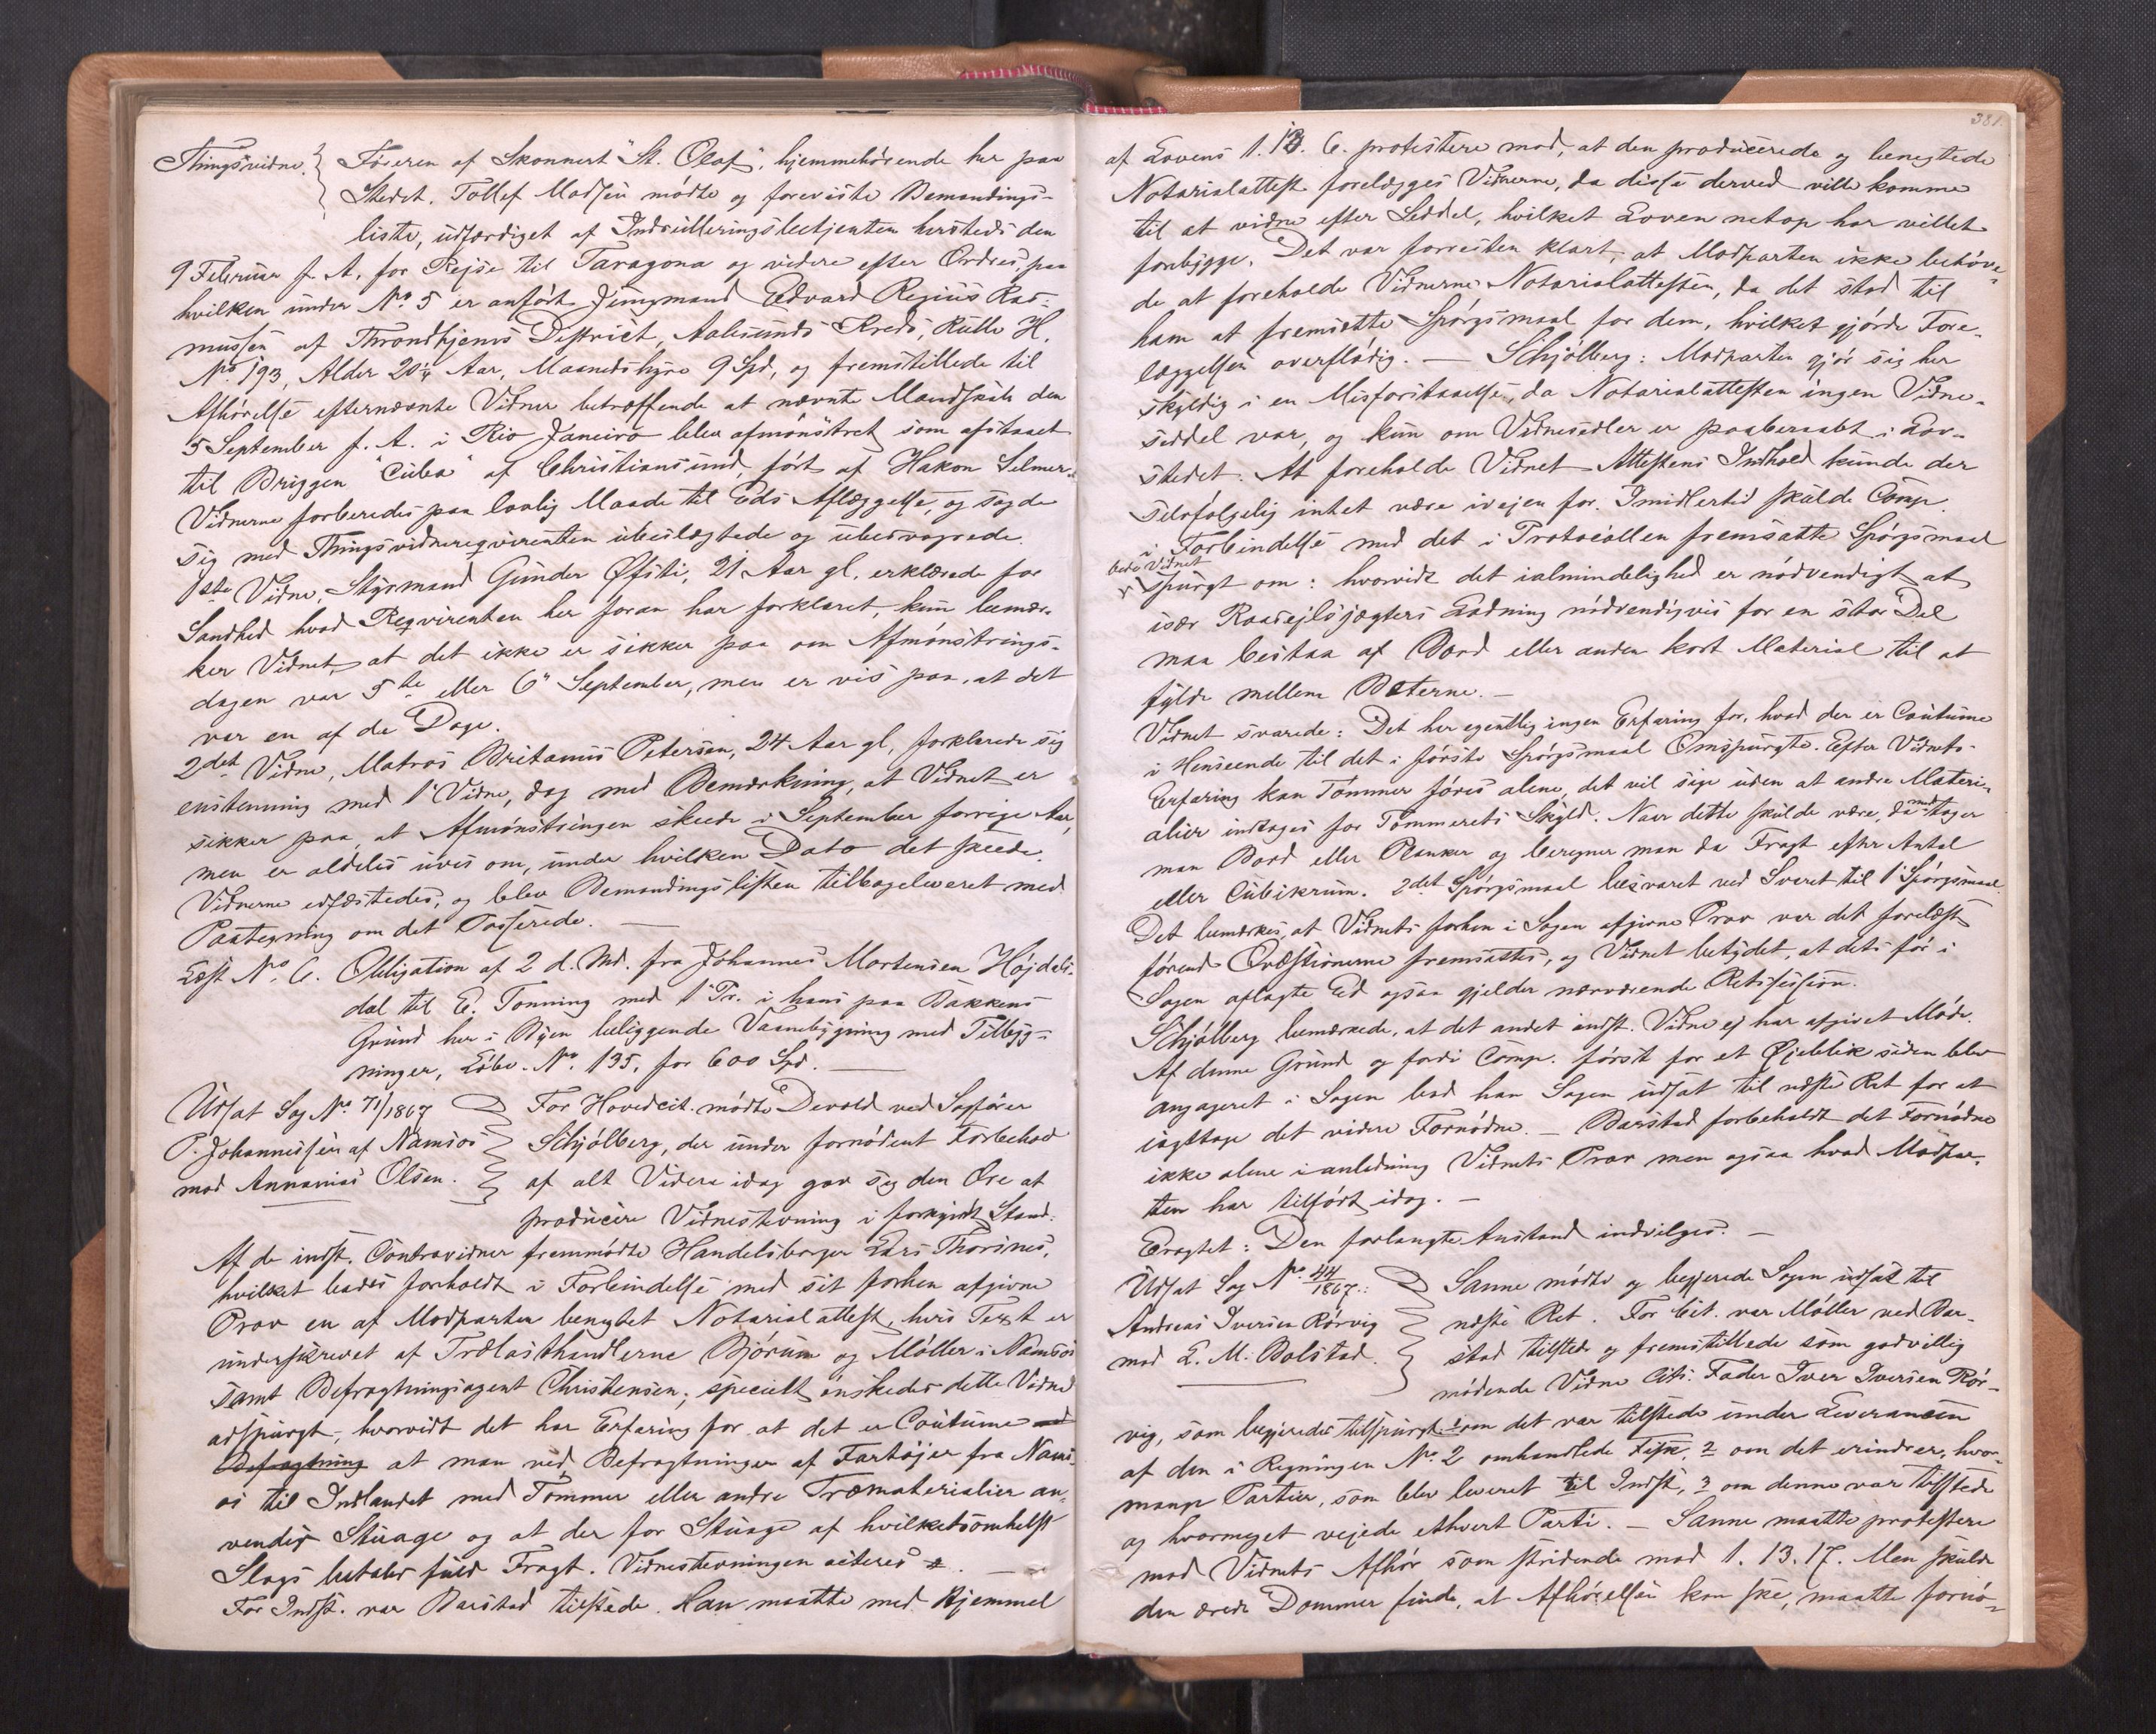 Thingsvidne. Føreren af Skonnert "St. Olaf", hjemmehørende her paa
Stedet, Tollef Madsen mødte og foreviste Bemandings-
liste, udfærdiget af Indrulleringsbetjenten hersteds den
9 Februar f. A. for Rejse til Taragona og videre efter Ordres, paa
hvilken under No 5 er anført Jungmand Edvard Regius Ras-
mussen af Throndhjems District, Aalesunds Kreds, Rulle H.
No 193, Alder 20¼ Aar, Maanedshyre 9 Spd, og fremstillede til
Afhørelse efternævnte Vidner betræffende at nævnte Mandskab den
5 September f. A. i Rio Janeiro blev afmønstret som afstaaet
til Briggen "Cuba" af Christianssund, ført af Hakon Selmer.
Vidnerne forberedes paa lovlig Maade til Eds Aflæggelse, og sagde
sig med Thingsvidnereqvirenten ubeslægtede og ubesvogrede.
1ste Vidne, Styrmand Gunder Øfsti, 21 Aar gl. erklærede for
Sandhed hvad Reqvirenten her foran har forklaret, kun bemær-
ker Vidnet, at det ikke er sikker paa om Afmønstrings-
dagen var 5te eller 6" September, men er vis paa, at det
var en af de Dage.
2det Vidne, Matros Britanus Petersen, 24 Aar gl, forklarede sig
enstemmig med 1" Vidne, dog med Bemærkning, at Vidnet er
sikker paa, at Afmønstringen skeede i September forrige Aar,
men er aldeles uvis om, under hvilken Dato det skeede.
Vidnerne edfæstedes, og blev Bemandingslisten tilbageleveret med
Paategning om det Passerede.
Læst No. 6. Obligation af 2 d. Md. fra Johannes Mortensen Højdals-
dal til E. Tonning med 1" Pr. i hans paa Bakkens
Grund her i Byen beliggende Vaanebygning med Tilbyg-
ninger, Løbe-No. 135, for 600 Spd.
Udsat Sag No. 71/1867 For Hovedcit. mødte Devold ved Sagfører
P. Johannessen af Namsos Schjølberg, der under fornødent Forbehod
mod Annanias Olsen. af alt Videre idag gav sig den Ære at
producere Vidnestevning i forkyndt Stand.
Af de indst. Contravidner fremmødte Handelsborger Lars Thorsnes,
hvilket bades forholdt i Forbindelse med sit forhen afgivne
Prov en af Modparten benyttet Notarialattest, hvis Text er
underskrevet af Trælasthandlerne Bjørum og Møller i Namsos
samt Befragtningsagent Christensen; specielt ønskedes dette Vidne
adspurgt, hvorvidt det har Erfaring for at det er Coutume ved
Befragtning at man ved Befragtninger af Fartøjer fra Nams-
os til Indlandet med Tømmer eller andre Træmaterialier an-
vender Stuage og at der for Stuage af hvilketsomhelst
Slags betales fuld Fragt. Vidnestevningen aciteres.
For Indst. var Barstad tilstede. Han maatte med Hjemmel
381.
af Lovens 1. 13. 6. protestere mod, at den producerede og benegtede
Notarialattest forelægges Vidnerne, da disse derved ville komme
til at vidne efter Seddel, hvilket Loven netop har villet
forebygge. Det var forresten klart, at Modparten ikke behøve-
de at foreholde Vidnerne Notarialattesten, da det stod til
ham at fremsætte Spørgsmaal for dem, hvilket gjorde Fore-
læggelsen overflødig. — Schjølberg: Modparten gjør sig her
skyldig i en Misforstaaelse, da Notarialattesten ingen Vidne-
seddel var, og kun om Vidnesedler er paaberaabt i Lov-
stedet. At foreholde Vidnet Attestens Indhold kunde der
selvfølgelig intet være ivejen for. Imidlertid skulde Comp.
i Forbindelse med det i Protocollen fremsatte Spørgsmaal
bede Vidnet
spurgt om: hvorvidt det ialmindelighed er nødvendigt at
især Raasejlsjægters Ladning nødvendigvis for en stor Del
maa bestaa af Bord eller anden kort Material til at
fylde mellem Beterne. —
Vidnet svarede: Det har egentlig ingen Erfaring for, hvad der er Coutume
i Henseende til det i første Spørgsmaal Omspurgte. Efter Vidnets
Erfaring kan Tømmer føres alene, det vil sige uden at andre Materi-
alier indtages for Tømmerets Skyld. Naar dette skulde være, da medtager
man Bord eller Planker og beregner man da Fragt efter Antal
eller Cubikrum. 2det Spørgsmaal besvaret ved Svaret til 1" Spørgsmaal.
Det bemærkes, at Vidnets forhen i Sagen afgivne Prov var det forelæst
førend Qvæstionerne fremsattes, og Vidnet betydet, at dets før i
Sagen aflagte Ed ogsaa gjelder nærværende Retssession.
Schjølberg bemærkede, at det andet indst. Vidne ej har afgivet Møde.
Af denne Grund og fordi Comp. først for et Øjeblik siden blev
angageret i Sagen bad han Sagen udsat til næste Ret for at
iagttage det videre Fornødne. — Barstad forbeholdt det Fornødne
ikke alene i anledning Vidnets Prov men ogsaa hvad Modpar-
ten har tilført idag. —
Eragtet: Den forlangte Anstand indvilges. —
Udsat Sag No. 44/1867: Sanne mødte og begjerede Sagen udsat til
Andreas Iversen Rørvig næste Ret. For Cit. var Møller ved Bar-
mod L. M. Bolstad. stad tilstede og fremstillede som godvillig
mødende Vidne Cits. Fader Iver Iversen Rør-
vig, som begjeredes tilspurgt 1 om det var tilstede under Leverancen
af den i Regningen No. 2 omhandlede Fisk, 2 om det erindrer, hvor-
mange Partier, som blev leveret til Indst, 3 om denne var tilstede
og hvormeget vejede ethvert Parti. — Sanne maatte protestere
mod Vidnets Afhør som stridende mod 1. 13. 17. Men skulde
den ærede Dommer finde, at Afhørelsen kan ske, maatte fornø-